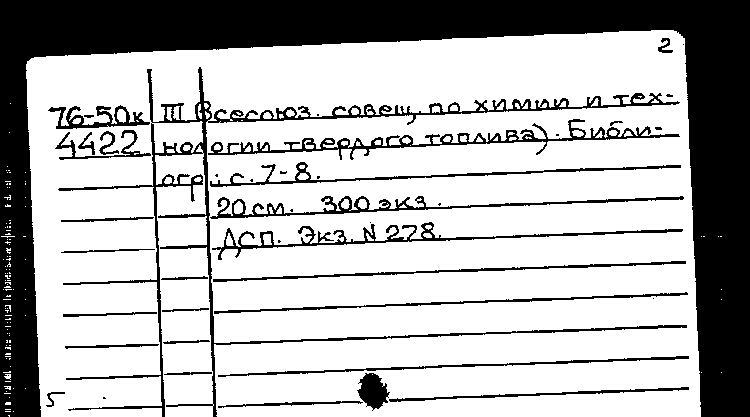 2
76-50к III Всесоюз. совещ. по химии и тех-
4422 нологии твердого топлива). Библи-
огр.: с. 7-8.
20 см. 300 экз.
ДСП. Экз. N 278.
5